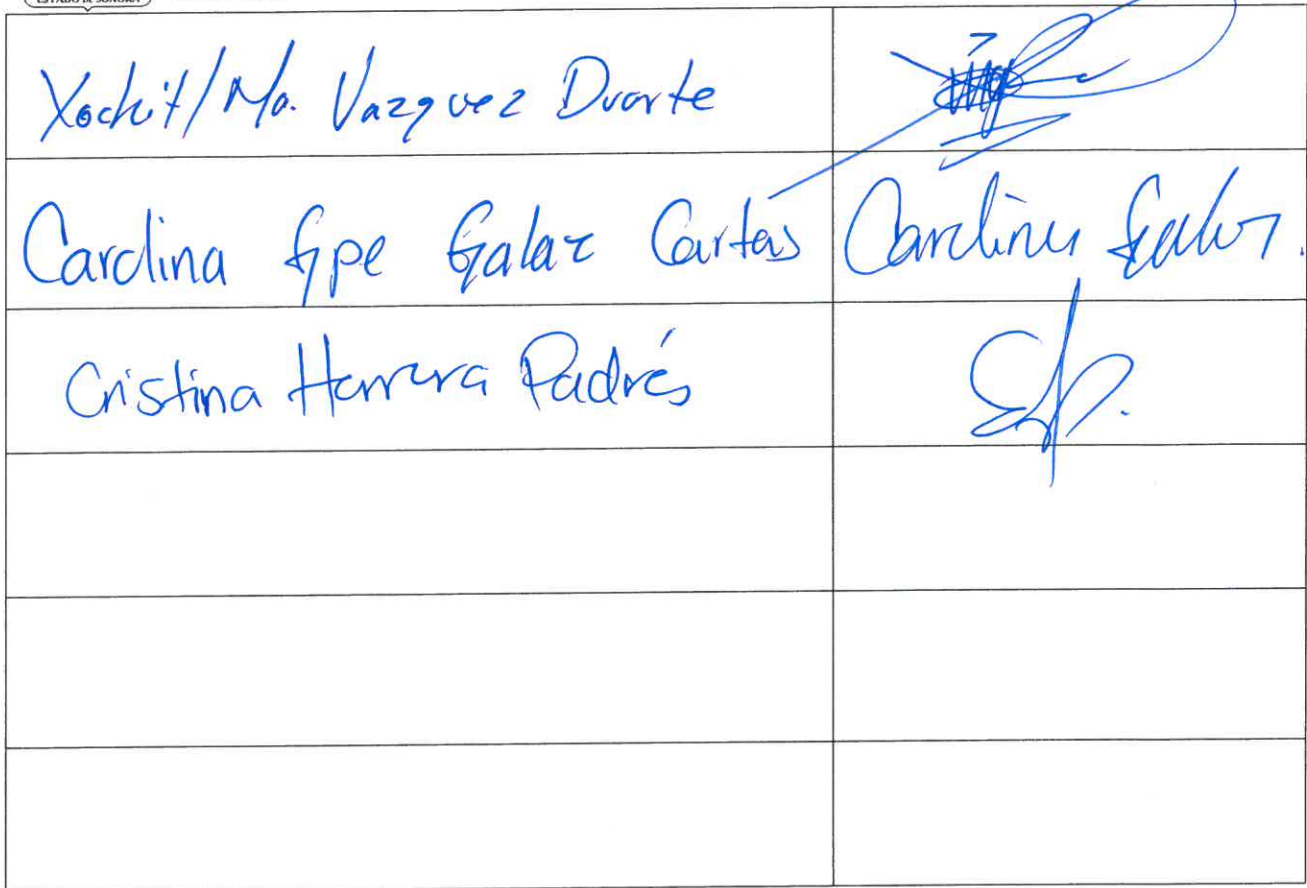 ESTADO DE SONORA
Xochitl Ma. Vazquez Duarte
Carolina Gpe Galaz Cortés Carolina Galaz.
Cristina Herrera Padrés